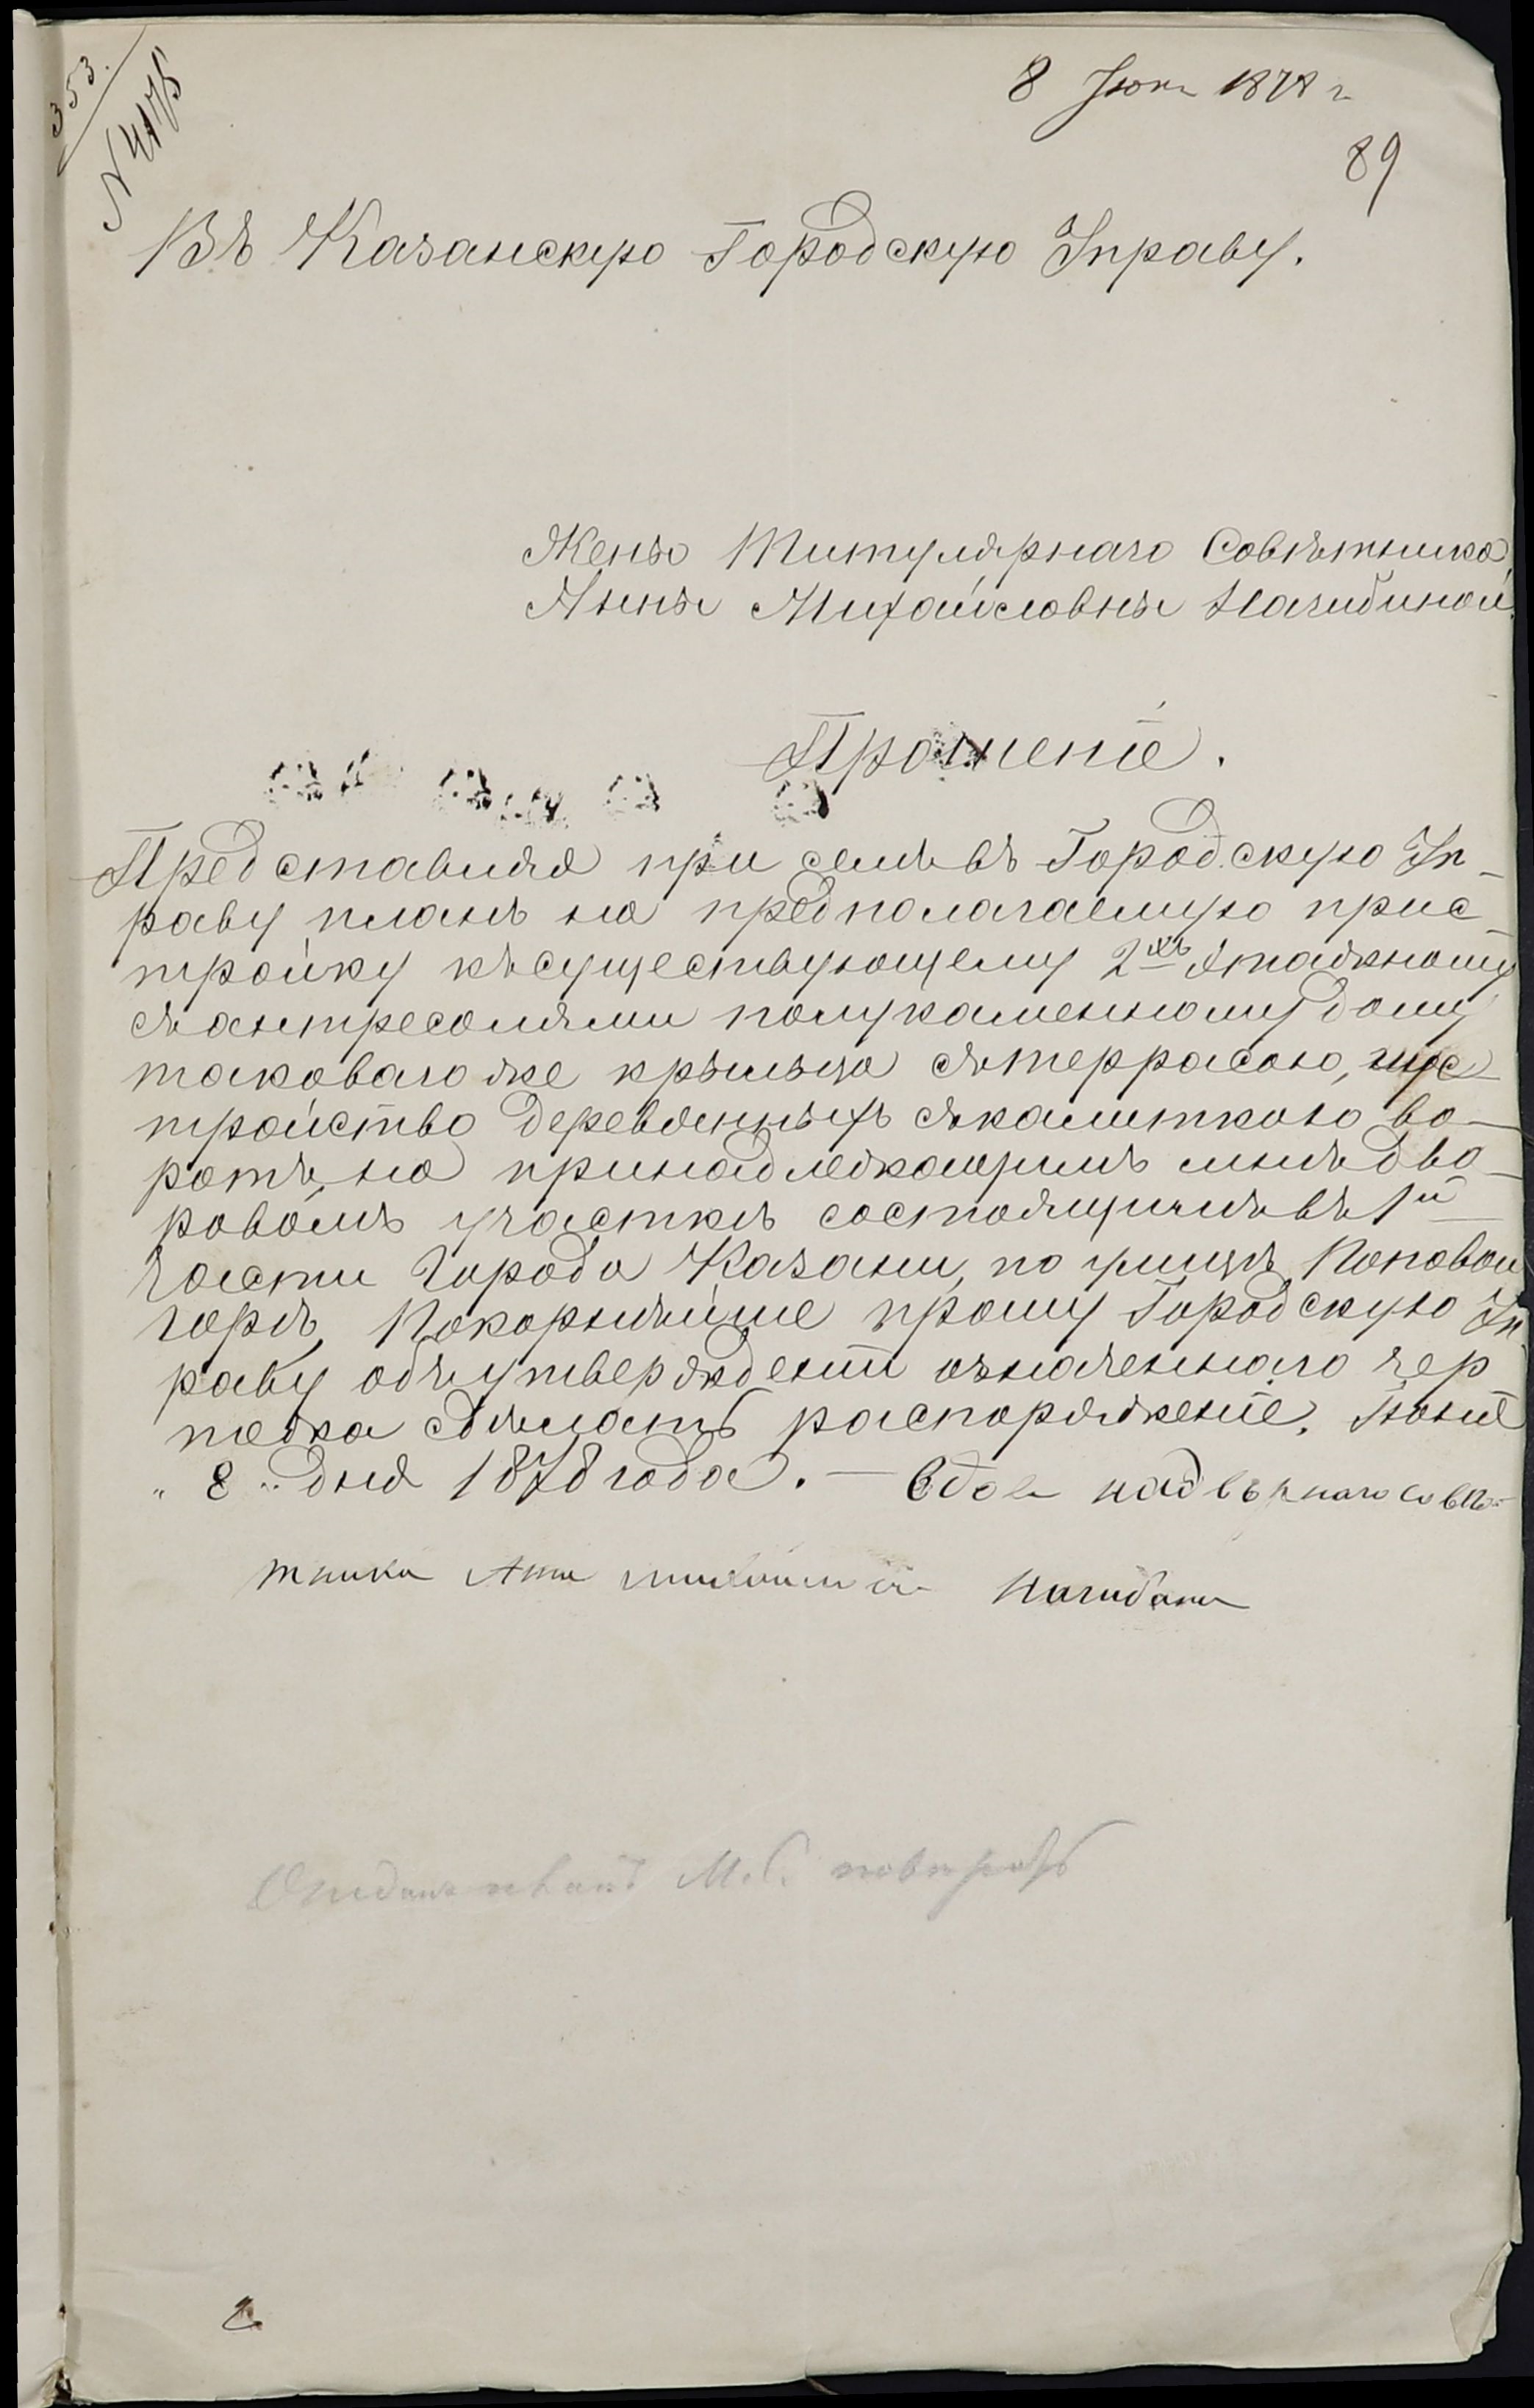 353.
N 4175
8 Июня 1878 г
89
Въ Казанскую Городскую Управу.
Жены Титулярнаго Совѣтника,
Анны Михайловны Нагибиной
Прошеніе.
Представляя при семъ въ Городскую Уп-
раву планъ на предполагаемую прис-
тройку къ существующему 2хъ этажному
съ антресолями полукаменному дому
таковаго же крыльца съ террасою, и ус-
тройство деревянныхъ съ калиткою во-
ротъ, на принадлежащимъ мнѣ дво-
ровомъ участкѣ состоящимъ въ 1й
части города Казани, по улицѣ Поповой
горѣ, Покорнѣйше прошу Городскую Уп
раву объ утвержденіи означеннаго чер
тежа сдѣлать распоряженіе. Іюня
"8" дня 1878 года. — Вдова надворнаго совѣ-
тника Анна Нагибина